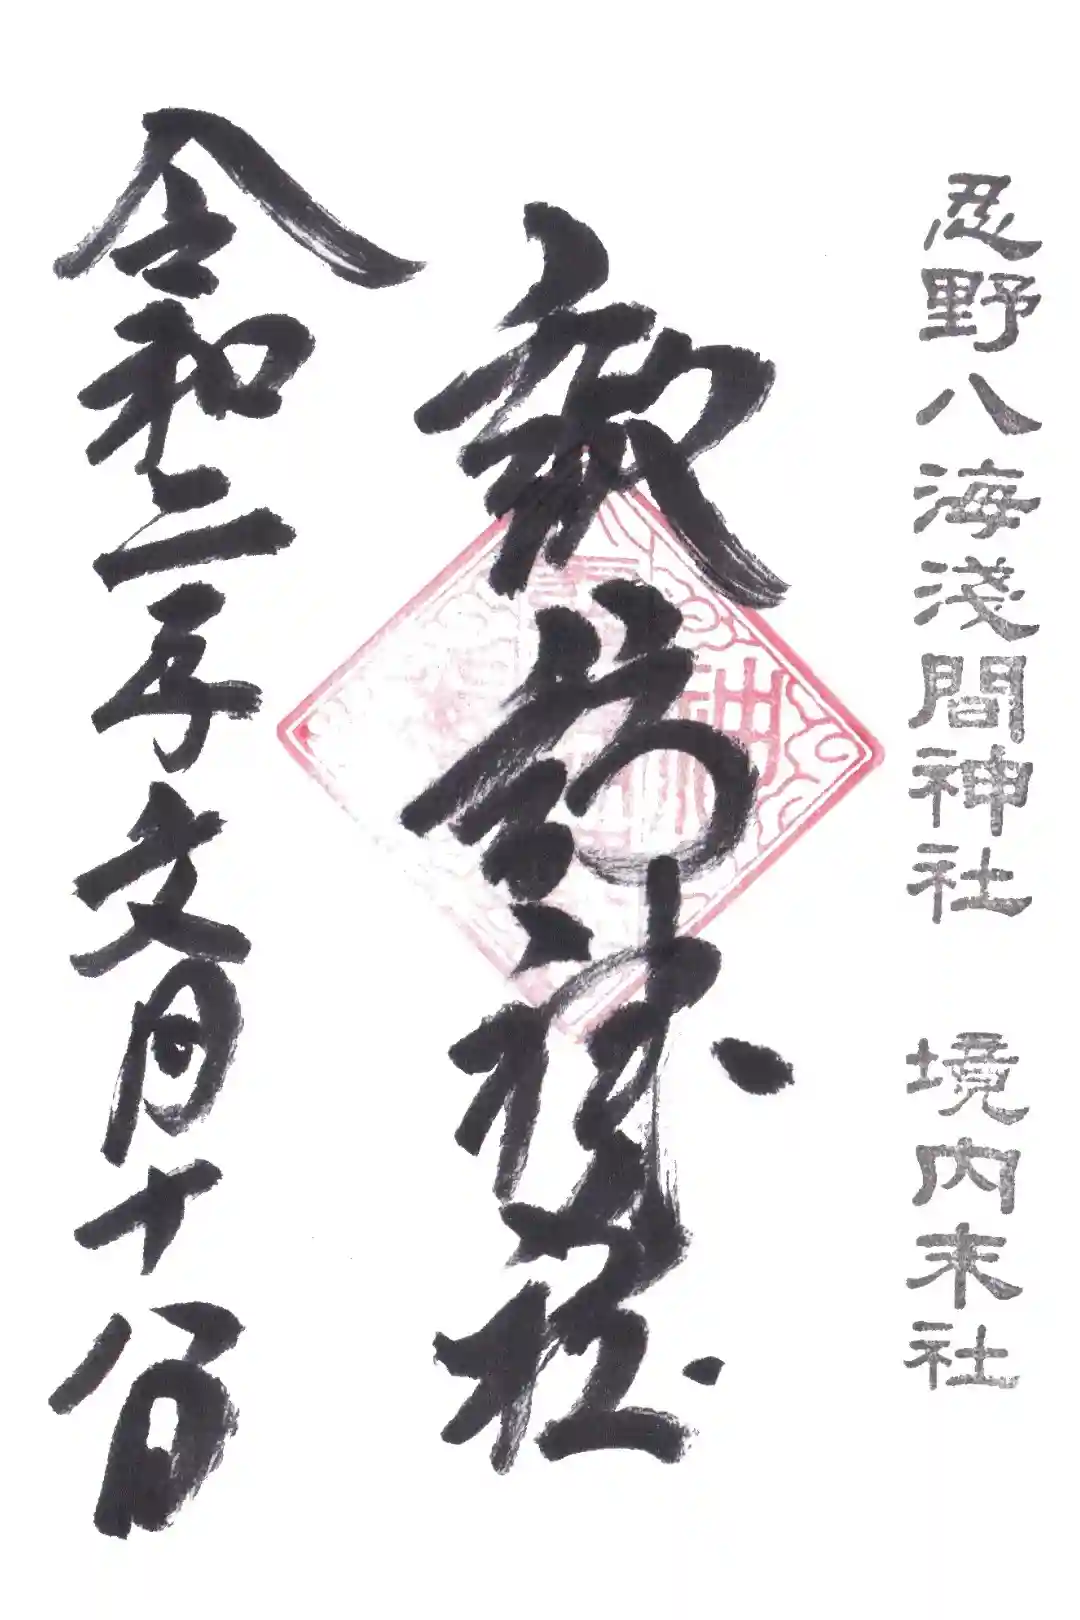 忍野八海淺間神社　境内末社
諏訪神社
令和二年文月十八日